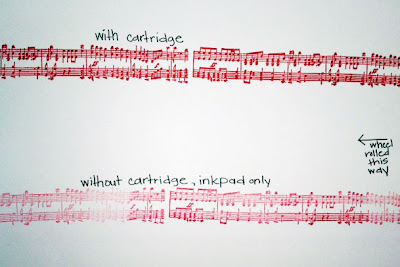 with cartridge
wheel
rolled
this
way
without cartridge, inkpad only